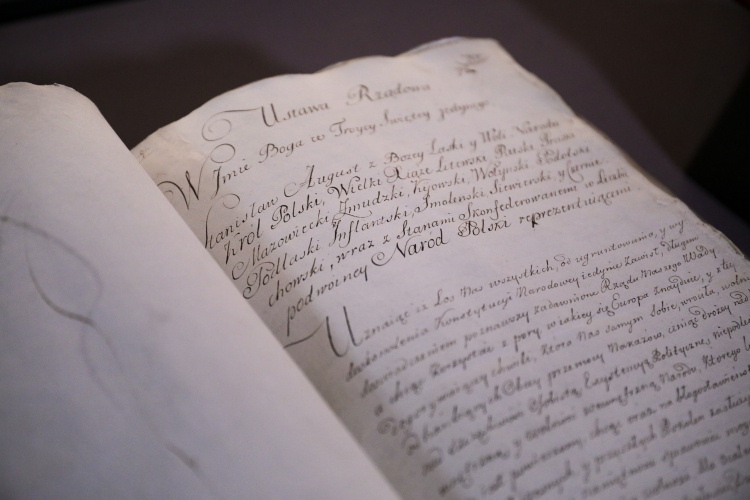 Ustawa Rządowa
W Imie Boga w Troycy Swiętey jedynego
Stanisław August z Bożey Łaski y Woli Narodu
Król Polski, Wielki Xiąże Litewski, Ruski, Pruski
Mazowiecki, Zmudzki, Kijowski, Wołynski, Podolski
Podlaski Inflantski, Smoleński Siewierski, y Czernie
chowski, wraz z Stanami Skonfederowanemi w Liczbie
podwóiney Naród Polski reprezentuiącemi
Uznaiąc iż Los Nas wszystkich, od ugruntowania, y wy
doskonalenia Konstytucyi Narodowey iedynie zawisł, długim
doświadczeniem poznawszy zadawnione Rządu Naszego Wady
a chcąc korzystac z pory, w iakiey się Europa znayduie, y z tey
chwili, która Nas samym Sobie wrociła, wolni
przemocy Nakazow, ceniąc drożey nad
Exystencyą Polityczną, niepodle
zewnętrzną Narodu, którego
chcąc oraz na błogosławieństwo
y przyszłych Pokoleń zasłużyć